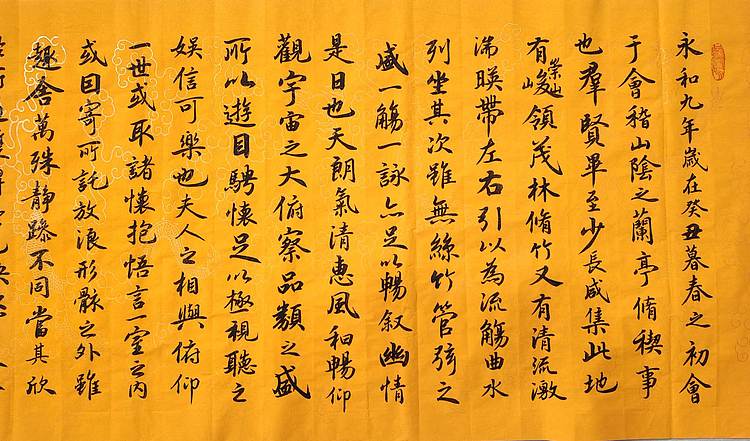 永和九年歲在癸丑暮春之初會
于會稽山陰之蘭亭脩禊事
也羣賢畢至少長咸集此地
有崇山峻領茂林脩竹又有清流激
湍暎帶左右引以為流觴曲水
列坐其次雖無絲竹管弦之
盛一觴一詠亦足以暢叙幽情
是日也天朗氣清惠風和暢仰
觀宇宙之大俯察品類之盛
所以遊目騁懷足以極視聽之
娛信可樂也夫人之相與俯仰
一世或取諸懷抱悟言一室之内
或因寄所託放浪形骸之外雖
趣舍萬殊静躁不同當其欣